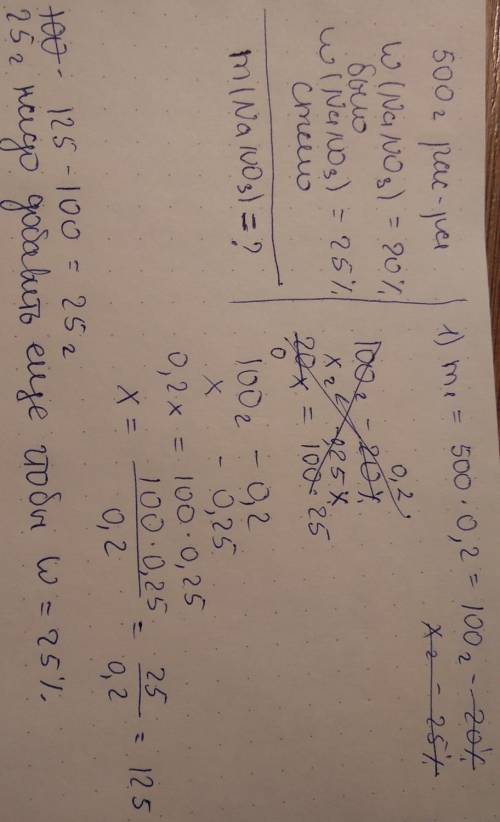 500г рас-ра
w(NaNO3) = 20%
было
w(NaNO3) = 25%
стало
m(NaNO3) = ?
1) m1 = 500·0,2 = 100г - 20%
xг - 25%
100г - 20% 0,2
xг - 25%
20x = 100·25
0
100г - 0,2
x - 0,25
0,2x = 100·0,25
x = 100·0,25 / 0,2 = 25 / 0,2 = 125
100 - 125 - 100 = 25г
25г надо добавить еще чтобы w = 25%